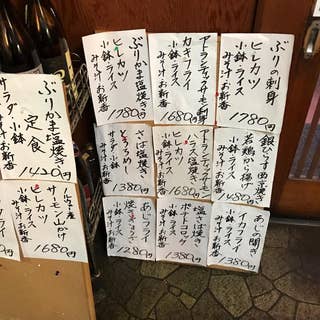 ぶりの刺身
ヒレカツ
小鉢 ライス
みそ汁・お新香
1780円
アトランティックサーモン刺
カキフライ
小鉢 ライス
みそ汁 お新香
1680円
ぶりかま塩焼き
ヒレカツ
小鉢 ライス
みそ汁 お新香
1780円
ぶりかま塩焼き
定食
サラダ 小鉢
みそ汁 お新香
1430円
銀だら西京焼き
若鶏から揚げ
小鉢 ライス
みそ汁 お新香
アトランティックサーモン
ヒレカツ
小鉢 ライス
みそ汁 お新香
1680円
さば塩焼き
とろろめし
サラダ 小鉢
みそ汁 お新香
1380円
サーモン
ヒレカツ
小鉢 ライス
みそ汁 お新香
1680円
あじの開き
イカフライ
小鉢 ライス
みそ汁 お新香
1380円
塩さば焼き
ポテトコロッケ
小鉢 ライス
みそ汁 お新香
1380円
あじフライ
焼
小鉢 ライス
みそ汁 お新香
1280円